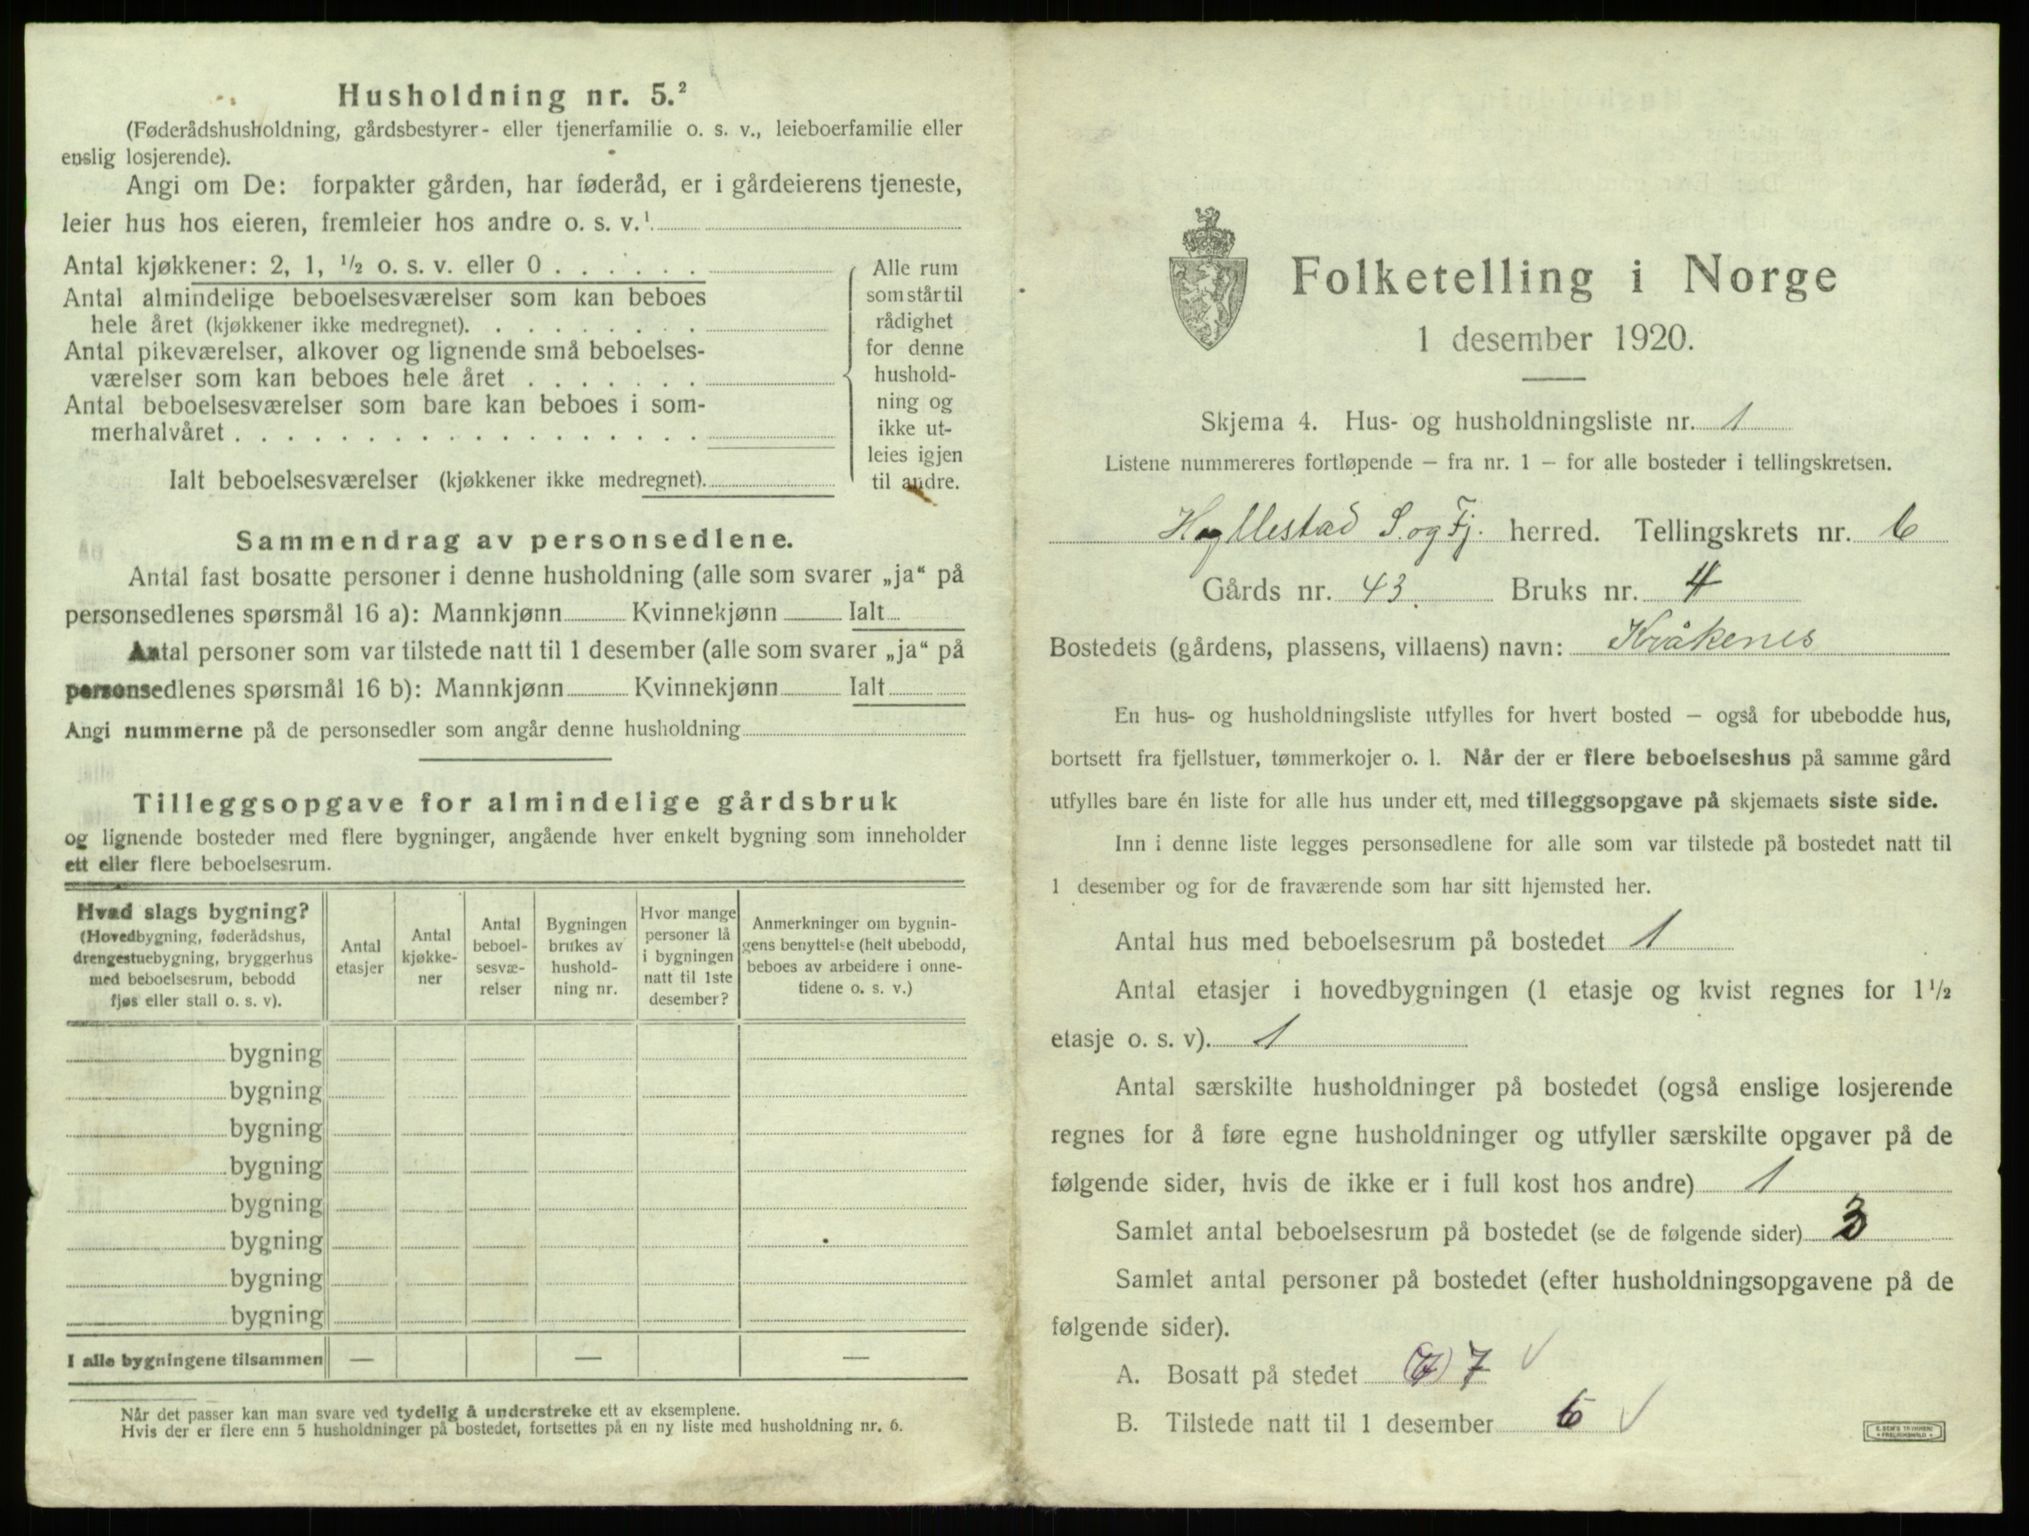 Husholdning nr. 5.²
(Føderådshusholdning, gårdsbestyrer- eller tjenerfamilie o. s. v., leieboerfamilie eller
enslig losjerende).
Angi om De: forpakter gården, har føderåd, er i gårdeierens tjeneste,
leier hus hos eieren, fremleier hos andre o. s. v.¹
Antal kjøkkener: 2, 1, ½ o. s. v. eller 0 . . . . . .
Antal almindelige beboelsesværelser som kan beboes
hele året (kjøkkener ikke medregnet). . . . . . . . .
Antal pikeværelser, alkover og lignende små beboelses-
værelser som kan beboes hele året . . . . . . .
Antal beboelsesværelser som bare kan beboes i som-
merhalvåret . . . . . . . . . . . . . . . . . .
Ialt beboelsesværelser (kjøkkener ikke medregnet).
Alle rum
som står til
rådighet
for denne
hushold-
ning og
ikke ut-
leies igjen
til andre.
Sammendrag av personsedlene.
Antal fast bosatte personer i denne husholdning (alle som svarer „ja“ på
personsedlenes spørsmål 16 a): Mannkjønn Kvinnekjønn Ialt
Antal personer som var tilstede natt til 1 desember (alle som svarer „ja“ på
personsedlenes spørsmål 16 b): Mannkjønn Kvinnekjønn Ialt
Angi nummerne på de personsedler som angår denne husholdning
Tilleggsopgave for almindelige gårdsbruk
og lignende bosteder med flere bygninger, angående hver enkelt bygning som inneholder
ett eller flere beboelsesrum.
Hvad slags bygning?
(Hovedbygning, føderådshus,
drengestuebygning, bryggerhus
med beboelsesrum, bebodd
fjøs eller stall o. s. v).
Antal
etasjer
Antal
kjøkke-
ner
Antal
beboel-
sesvæ-
relser
Bygningen
brukes av
hushold-
ning nr.
Hvor mange
personer lå
i bygningen
natt til 1ste
desember?
Anmerkninger om bygnin-
gens benyttelse (helt ubebodd,
beboes av arbeidere i onne-
tidene o. s. v.)
bygning
bygning
bygning
bygning
bygning
bygning
bygning
bygning
I alle bygningene tilsammen — — —
Når det passer kan man svare ved tydelig å understreke ett av eksemplene.
Hvis der er flere enn 5 husholdninger på bostedet, fortsettes på en ny liste med husholdning nr. 6.
Folketelling i Norge
1 desember 1920.
Skjema 4. Hus- og husholdningsliste nr. 1
Listene nummereres fortløpende – fra nr. 1 – for alle bosteder i tellingskretsen.
Hyllestad S. og Fj. herred. Tellingskrets nr. 6
Gårds nr. 43 Bruks nr. 4
Bostedets (gårdens, plassens, villaens) navn: Kråkenes
En hus- og husholdningsliste utfylles for hvert bosted – også for ubebodde hus,
bortsett fra fjellstuer, tømmerkojer o. l. Når der er flere beboelseshus på samme gård
utfylles bare én liste for alle hus under ett, med tilleggsopgave på skjemaets siste side.
Inn i denne liste legges personsedlene for alle som var tilstede på bostedet natt til
1 desember og for de fraværende som har sitt hjemsted her.
Antal hus med beboelsesrum på bostedet 1
Antal etasjer i hovedbygningen (1 etasje og kvist regnes for 1½
etasje o. s. v). 1
Antal særskilte husholdninger på bostedet (også enslige losjerende
regnes for å føre egne husholdninger og utfyller særskilte opgaver på de
følgende sider, hvis de ikke er i full kost hos andre) 1
Samlet antal beboelsesrum på bostedet (se de følgende sider) 3
Samlet antal personer på bostedet (efter husholdningsopgavene på de
følgende sider).
A. Bosatt på stedet (7) 7
B. Tilstede natt til 1 desember 6